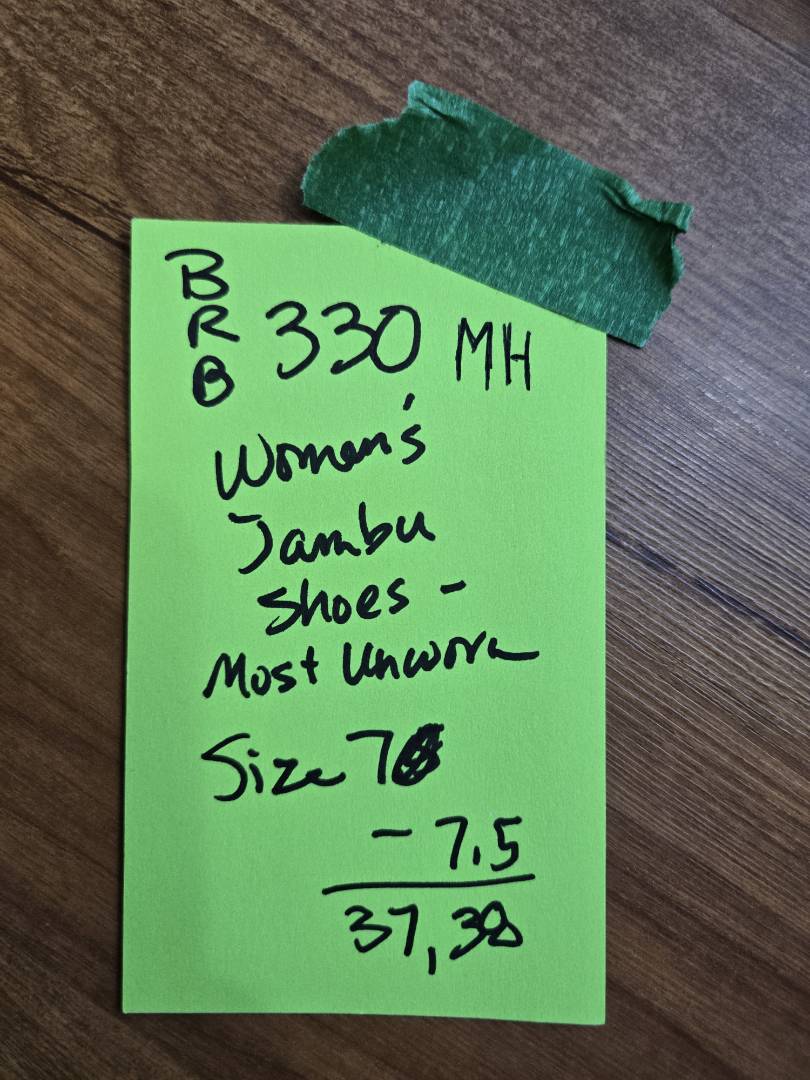 B
R
B
330 MH
Women's
Jambu
Shoes -
Most Unworn
Size 7
- 7.5
37, 38